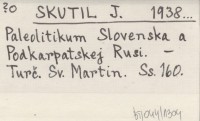 20 SKUTIL J. 1938...
Paleolitikum Slovenska a
Podkarpatskej Rusi. -
Turč. Sv. Martin. Ss. 160.